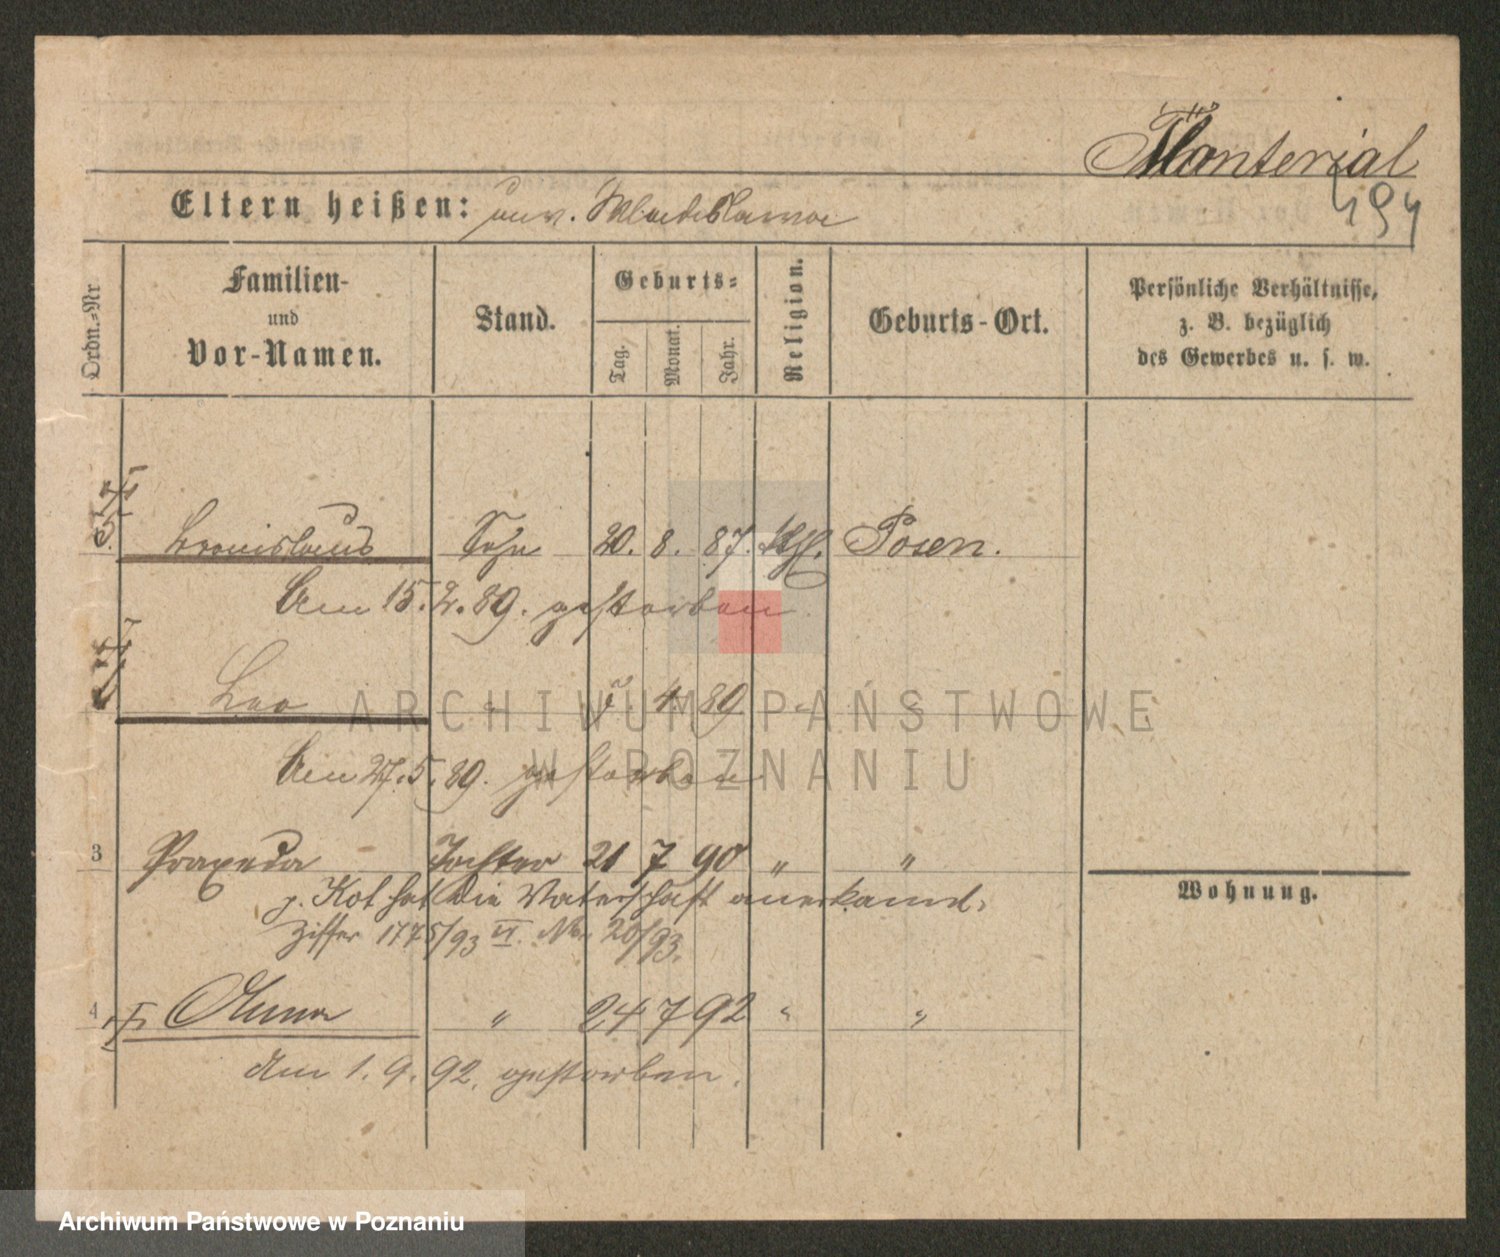 Manterial
494
Eltern heißen: unv. Wladislawa
Ordn.-Nr
Familien-
und
Vor-Namen.
Stand.
Geburts-
Tag.
Monat.
Jahr.
Religion.
Geburts-Ort.
Persönliche Verhältnisse,
z. B. bezüglich
des Gewerbes u. s. w.
Bronislaus Sohn 20. 8. 87. kth. Posen.
Am 15. 2. 89. gestorben.
Leo " 7. 4. 89 " "
Am 27. 5. 89. gestorben
3 Praxeda Tochter 21 7 90 " "
p. Kot hat die Vaterschaft anerkannt.
Ziffer 1775/93 VI. No. 20/93.
Wohnung.
4 Anna " 24 7 92 " "
Am 1. 9. 92. gestorben.
ARCHIWUM PAŃSTWOWE
W POZNANIU
Archiwum Państwowe w Poznaniu